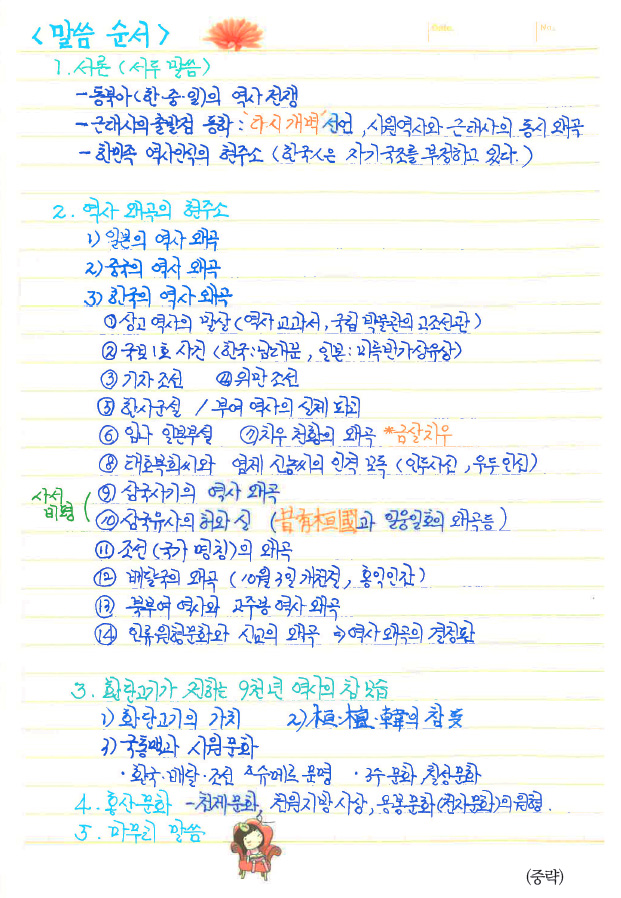 <말씀 순서>
Date. No.
1. 서론 (서두 말씀)
- 동북아(한·중·일)의 역사 전쟁
- 근대사의 출발점 동학 : '다시 개벽' 선언, 시원역사와 근대사의 동시 왜곡
- 한민족 역사인식의 현주소 (한국인은 자기 국조를 부정하고 있다.)
2. 역사 왜곡의 현주소
1) 일본의 역사 왜곡
2) 중국의 역사 왜곡
3) 한국의 역사 왜곡
① 상고 역사의 말살 (역사 교과서, 국립 박물관의 고조선관)
② 국보 1호 사건 (한국:남대문, 일본:미륵반가상유상)
③ 기자 조선 ④ 위만 조선
⑤ 한사군설 / 부여 역사의 실제 파괴
⑥ 임나 일본부설 ⑦ 치우 천황의 왜곡 *금살치우
⑧ 태호복희씨와 염제 신농씨의 인격 모독 (인두사신, 우두인신)
사서 비평 ( ⑨ 삼국사기의 역사 왜곡
⑩ 삼국유사의 허와 실 (昔有桓國과 일웅일호의 왜곡 등)
⑪ 조선 (국가 명칭)의 왜곡
⑫ 배달국의 왜곡 (10월 3일 개천절, 홍익인간)
⑬ 북부여 역사와 고주몽 역사 왜곡
⑭ 인류 원형문화와 신교의 왜곡 ⇒ 역사 왜곡의 결정판
3. 환단고기가 전하는 9천 년 역사의 참모습
1) 환단고기의 가치 2) 桓·檀·韓의 참 뜻
3) 국통맥과 시원문화
· 환국·배달·조선 수메르 문명 · 3수 문화, 칠성문화
4. 홍산문화 - 천제문화, 천원지방 사상, 용봉문화(천자문화)의 원형.
5. 마무리 말씀
(중략)